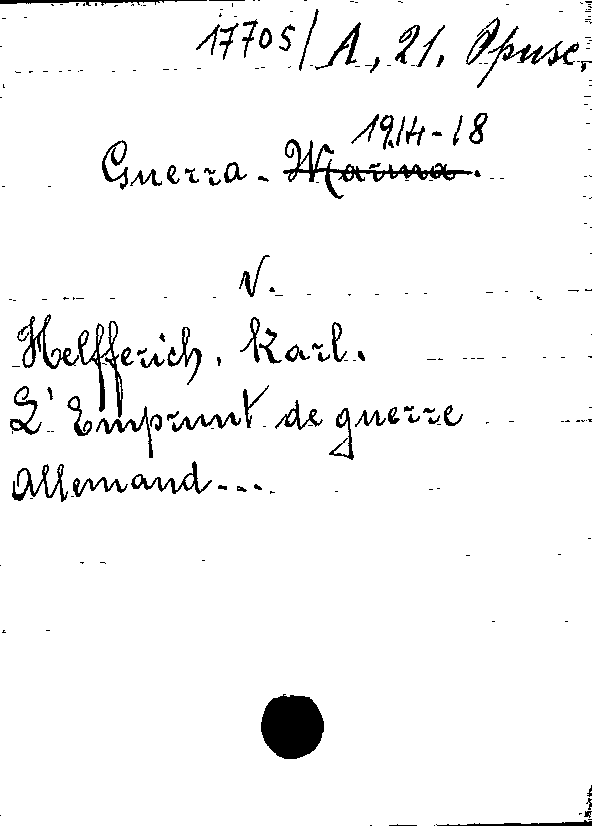 17705/A, 21. Opusc.
1914-18
Guerra - Marina.
V.
Helfferich, Karl.
L'Emprunt de guerre
Allemand...